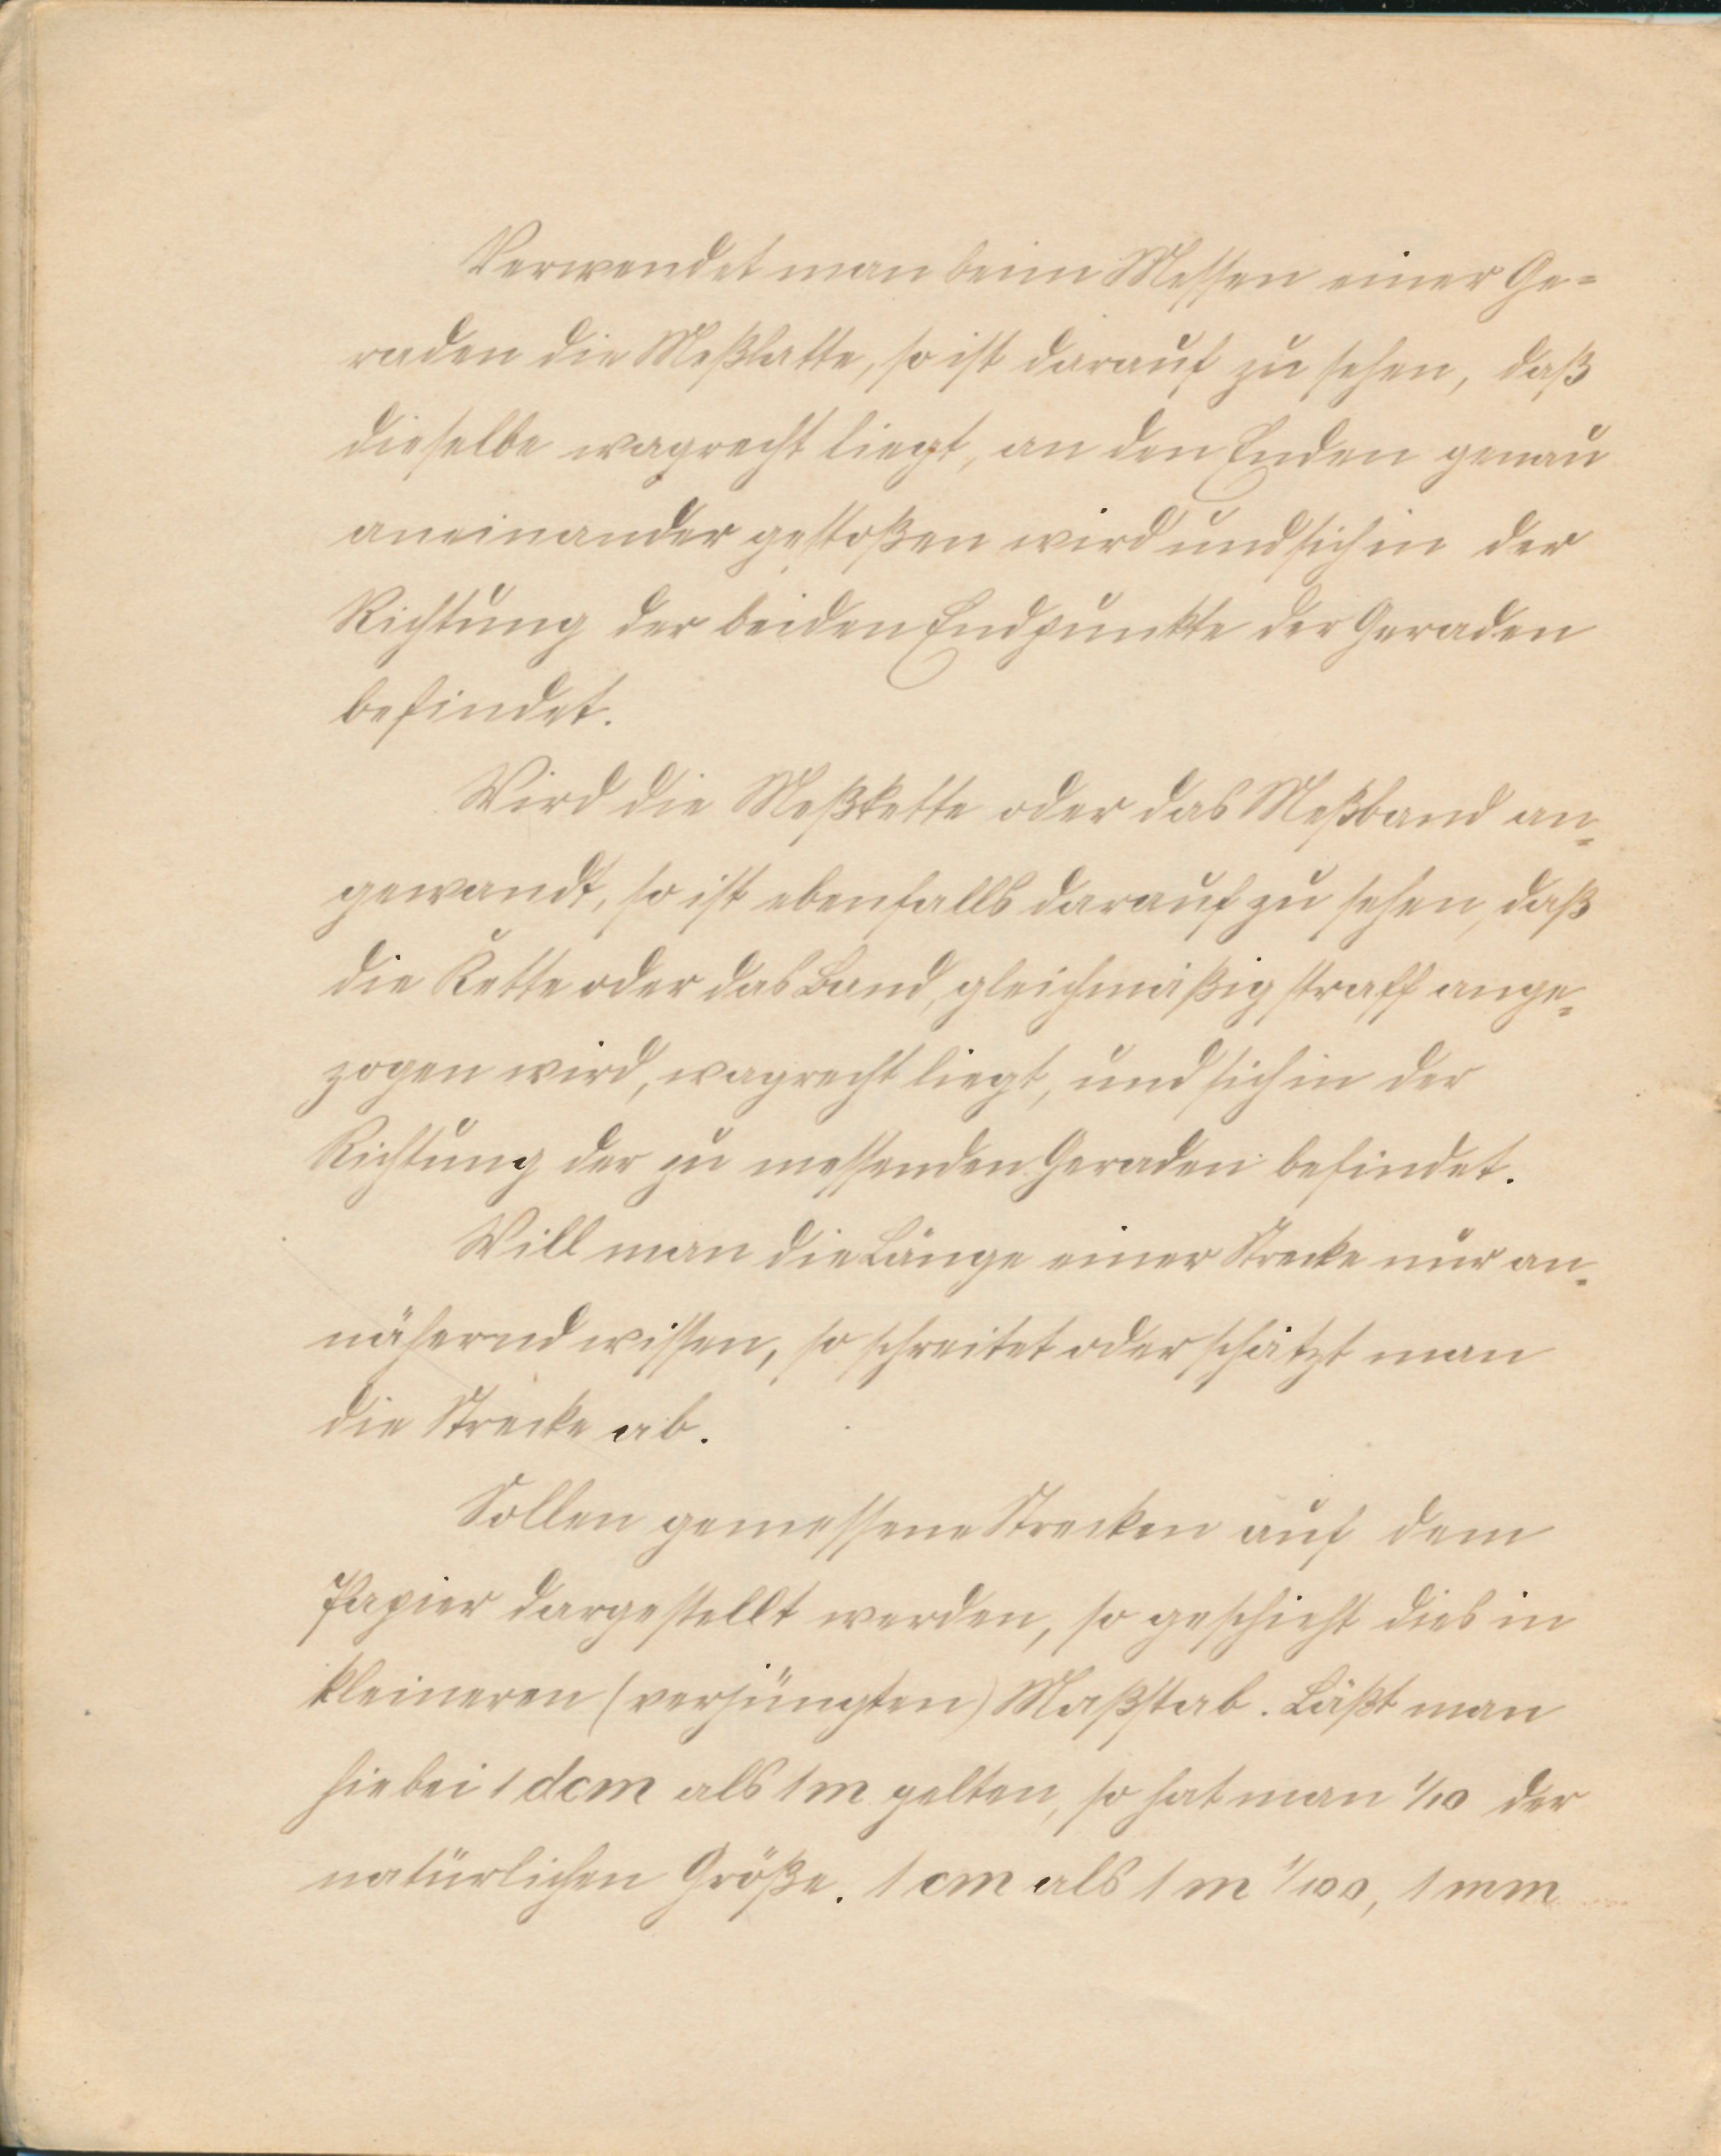 Verwendet man beim Messen einer Ge=
raden die Meßlatte, so ist darauf zu sehen, daß
dieselbe wagrecht liegt, an den Enden genau
aneinander gestoßen wird und sich in der
Richtung der beiden Endpunkte der Geraden
befindet.
Wird die Meßkette oder das Meßband an=
gewandt, so ist ebenfalls darauf zu sehen, daß
die Kette oder das Band, gleichmäßig straff ange=
zogen wird, wagrecht liegt, und sich in der
Richtung der zu messenden Geraden befindet.
Will man die Länge einer Strecke nur an=
nähernd wissen, so schreitet oder schätzt man
die Strecke ab.
Sollen gemessene Strecken auf dem
Papier dargestellt werden, so geschieht dies in
kleineren (verjüngten) Maßstab. Läßt man
hiebei 1 dcm als 1 m gelten, so hat man 1/10 der
natürlichen Größe. 1 cm als 1 m 1/100, 1 mm